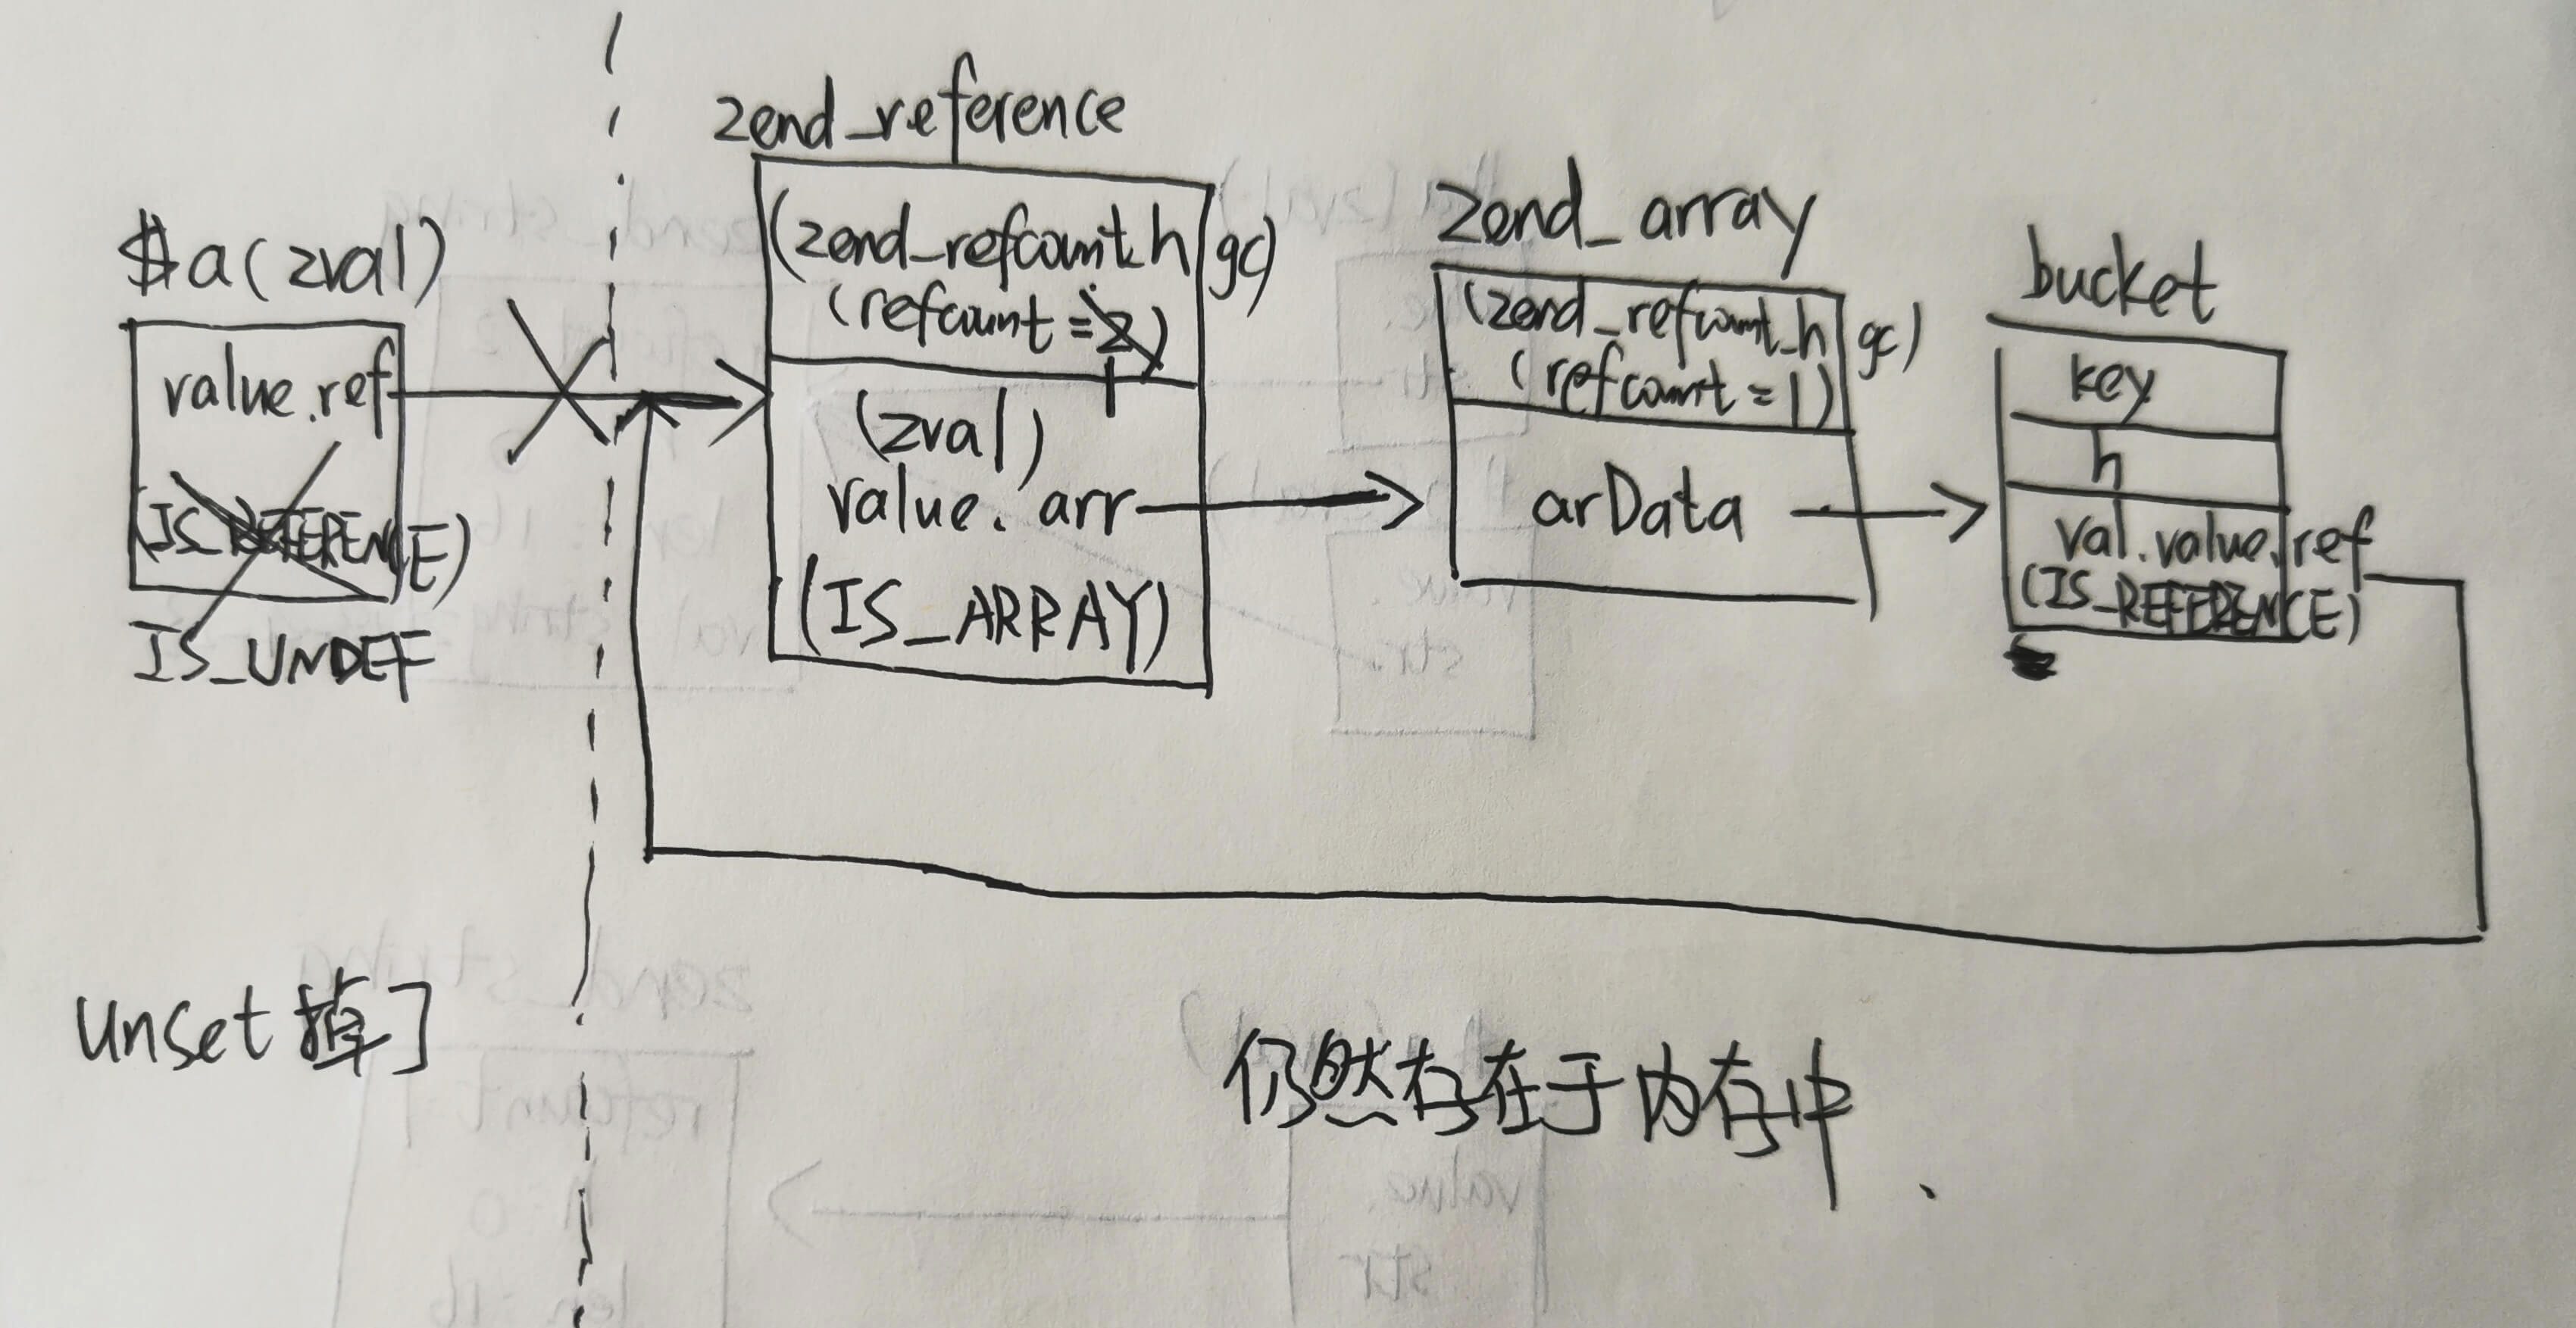 $a(zval)
value.ref
(IS_REFERENCE)
IS_UNDEF
zend_reference
(zend_refcount_h gc)
(refcount=2)
1
(zval)
value.arr
(IS_ARRAY)
zend_array
(zend_refcount_h gc)
(refcount=1)
arData
bucket
key
h
val.value.ref
(IS_REFERENCE)
unset掉了
仍然存在于内存中.